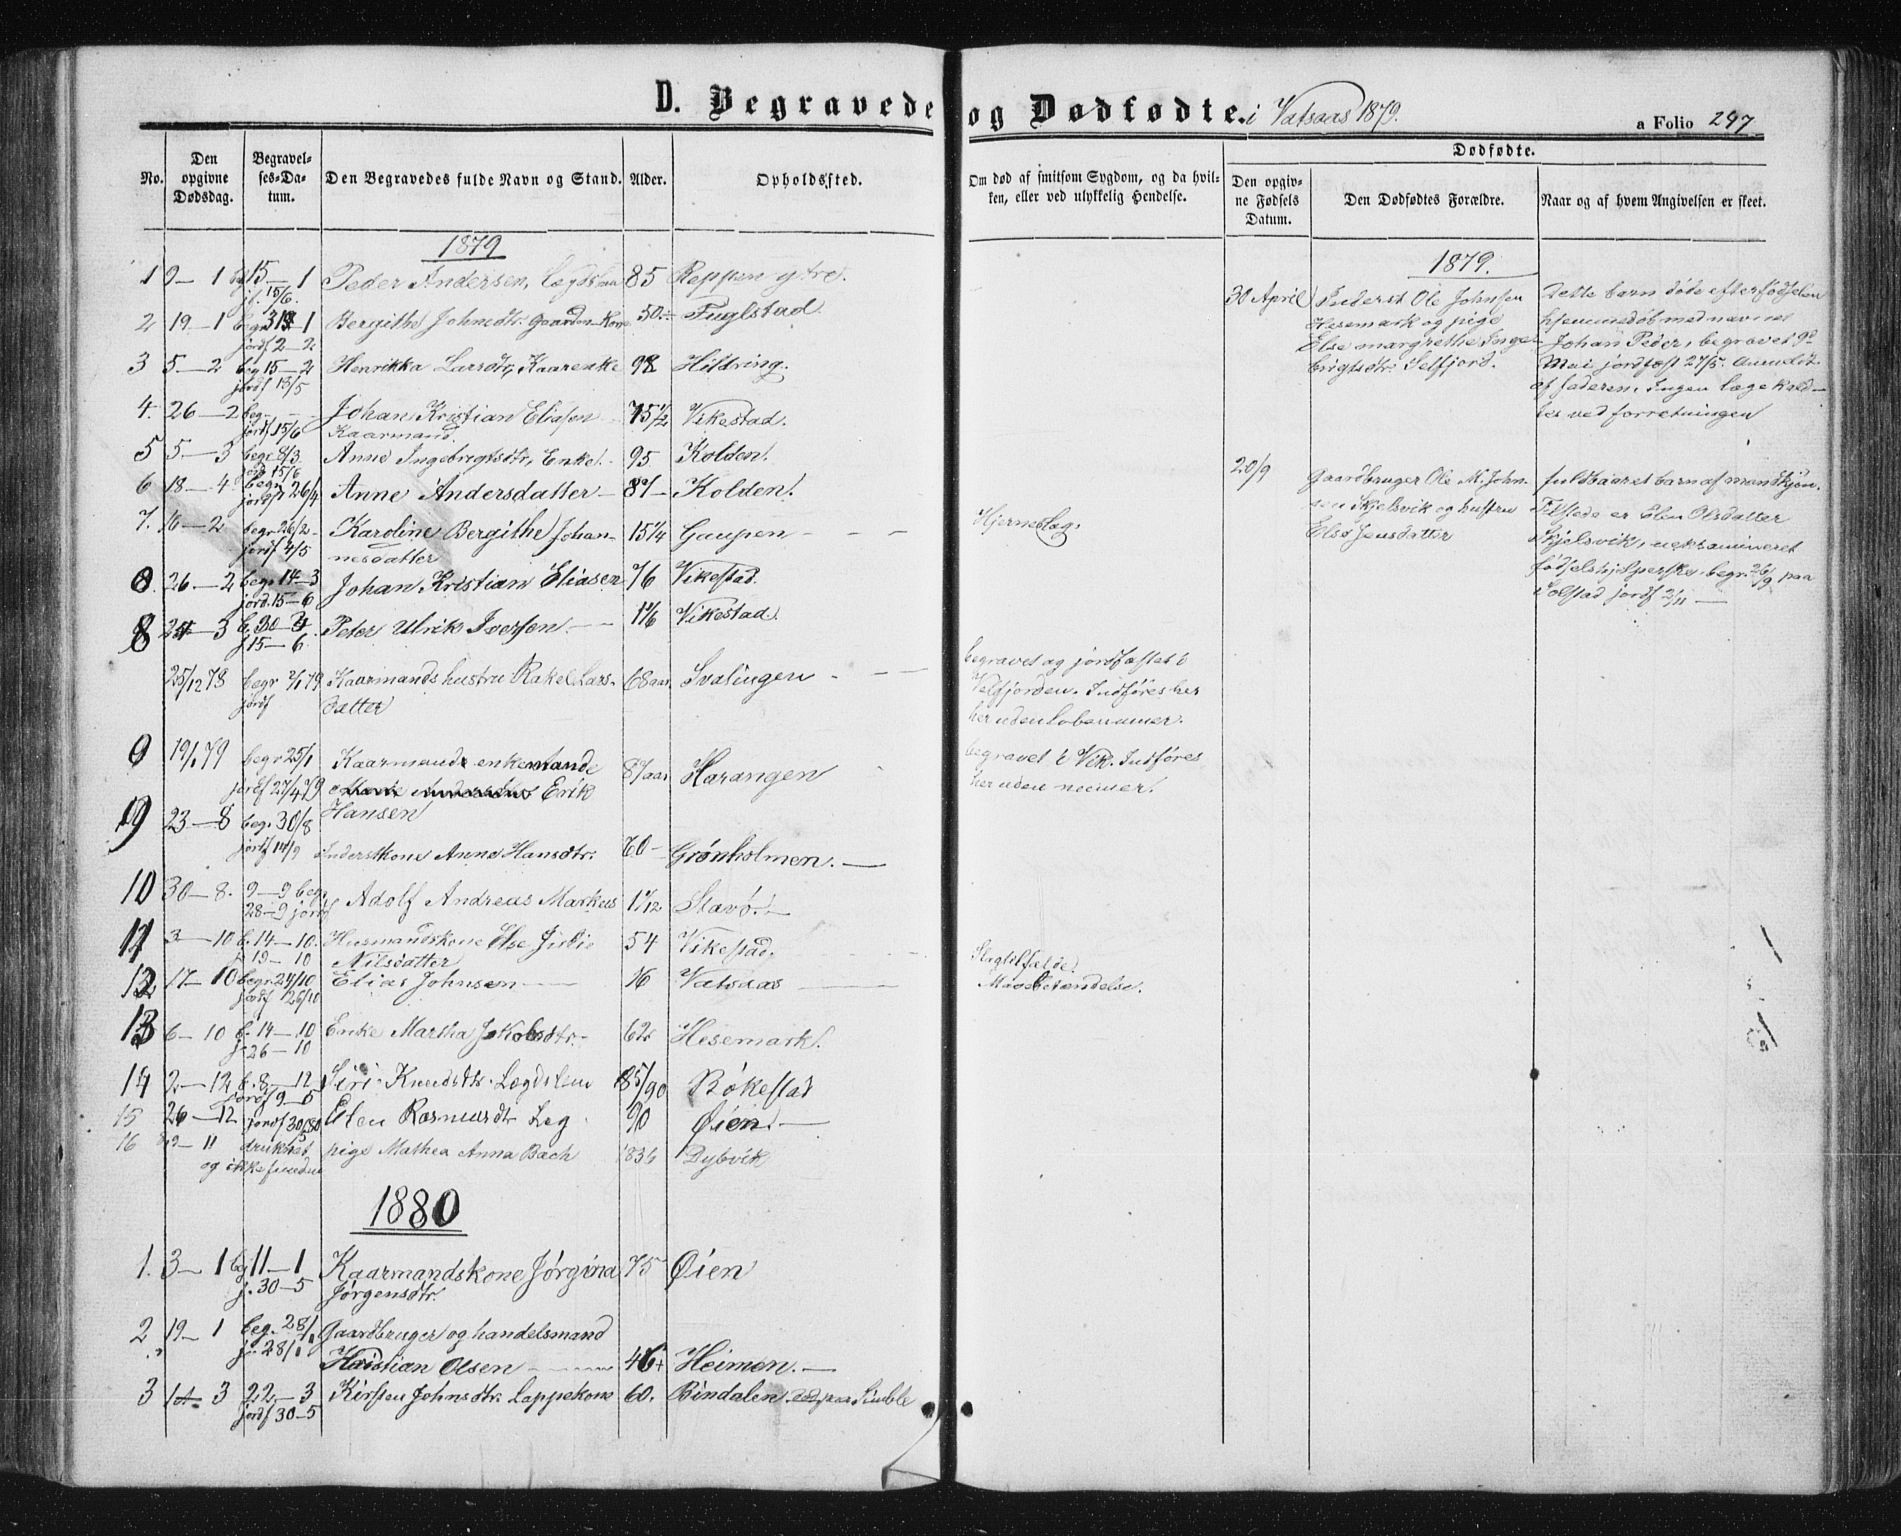 D. Begravede og Dødfødte. i Vatsaas 1879.
a Folio 247
No.
Den opgivne Dødsdag.
Begravelses-Datum.
Den Begravedes fulde Navn og Stand.
Alder.
Opholdssted.
Om død af smitsom Sygdom, og da hvilken, eller ved ulykkelig Hendelse.
Dødfødte.
Den opgivne Fødsels Datum.
Den Dødfødtes Forældre.
Naar og af hvem Angivelsen er skeet.
1879
1 9–1 bg 15–1 Peder Andersen, Lægdslem 85 Reppen ytre.
jf. 15/6.
2 19–1 begr 31–1 Bergithe Johnsdtr. Gaardm. Kone 50 Fuglstad
jordf 2–2
3 5–2 beg 15–2 Henrikka Larsdtr, Kaarenke 98 Hildring.
jordf 13/5
4. 26–2 beg. Johan Kristian Eliasen 75 1/2 Vikestad.
jordf 15/6 Kaarmand.
5 5–3 begr 8/3 Anne Ingebrigtsdtr, Enke. 95 Kolden.
jord 15/6
6 18–4 begr. Anne Andersdatter 87 Kolden.
jordf 26/4
7. 16–2 begr 26/2 Karoline Bergithe Johan- 15 1/4 Gaupen Hjerneslag.
jordf 4/5 nesdatter
8 26–2 begr 14–3 Johan Kristian Eliasen 76 Vikestad.
jord. 15–6
8 24–3 b. 30–3 Peter Ulrik Iversen. 1 1/6 Vikestad.
j 15–6.
25/12 78 begr 2/1 79 Kaarmands hustru Rakel Lars- 68 aar Svalingen
jordf datter
begravet og jordfæstet i
Velfjorden. Indføres her
her uden løbenumer.
9 19/1 79 begr 25/1 Kaarmand enkemand 87 aar Harangen
jordf 27/4 79 Erik
Hansen
begravet i Vik. Indføres
her uden numer.
19 23–8 beg. 30/8
jordf 14/9 Inderstkone Anne Hansdtr. 60 Grønholmen.
10 30–8. 9–9 beg. Adolf Andreas Markus 1 1/12 Stavø.
28–9 jordf
11 3–10 b. 14–10. Husmandskone Else 54 Vikestad.
j 19–10 Nilsdatter Slagtilfælde.
12 17–10 begr 24/10 Elias Johnsen 76 Vatsaas Mavebetændelse.
jordf 26/10
13 6–10 b. 14–10 Enke Martha Jakobsdtr. 62 Hesemark.
j–26–10
14 2–12 b. 8–12 Siri Knudsdtr. Lægdslem 85/90 Bøkestad
jordf 9–5
15 26–12 jordf 30/5 80 Elen Rasmusdtr Leg 90 Øien.
16 29–11 druknet pige Mathea Anna Bach 1836 Dybvik
og ikke funden
1880
1. 3–1 bg 11–1 Kaarmandskone Jørgina 75 Øien
j. 30–5 Jørgensdtr.
2 19–1 beg. 28/1. Gaardbruger og handelsmand
jo. 28/1 Kristian Olsen 46 Heimen.
3 14–3 22–3 Kirsten Johnsdtr. Lappekone 60. Bindalen død paa Simle
jordf 30–5
1879.
30 April Inderst Ole Johnsen
Hesemark og pige
Else Margrethe Inge-
brigtsdtr. Selfjord.
Dette barn døde efter fødselen
hjemmedøbt med navnet
Johan Peder, begravet 9de
Mai jordfæst 27/5. Anmeldt
af faderen. Ingen læge kald-
tes ved forretningen
20/9 Gaardbruger Ole M. John-
sen Skjelsvik og hustru
Else Jensdatter
fuldbaaret barn af mandkjøn.
Tilstede er Elen Olsdatter
Skjelsvik, ueksamineret
fødselshjelperske, begr. 26/9 paa
Solstad jordf 2/11